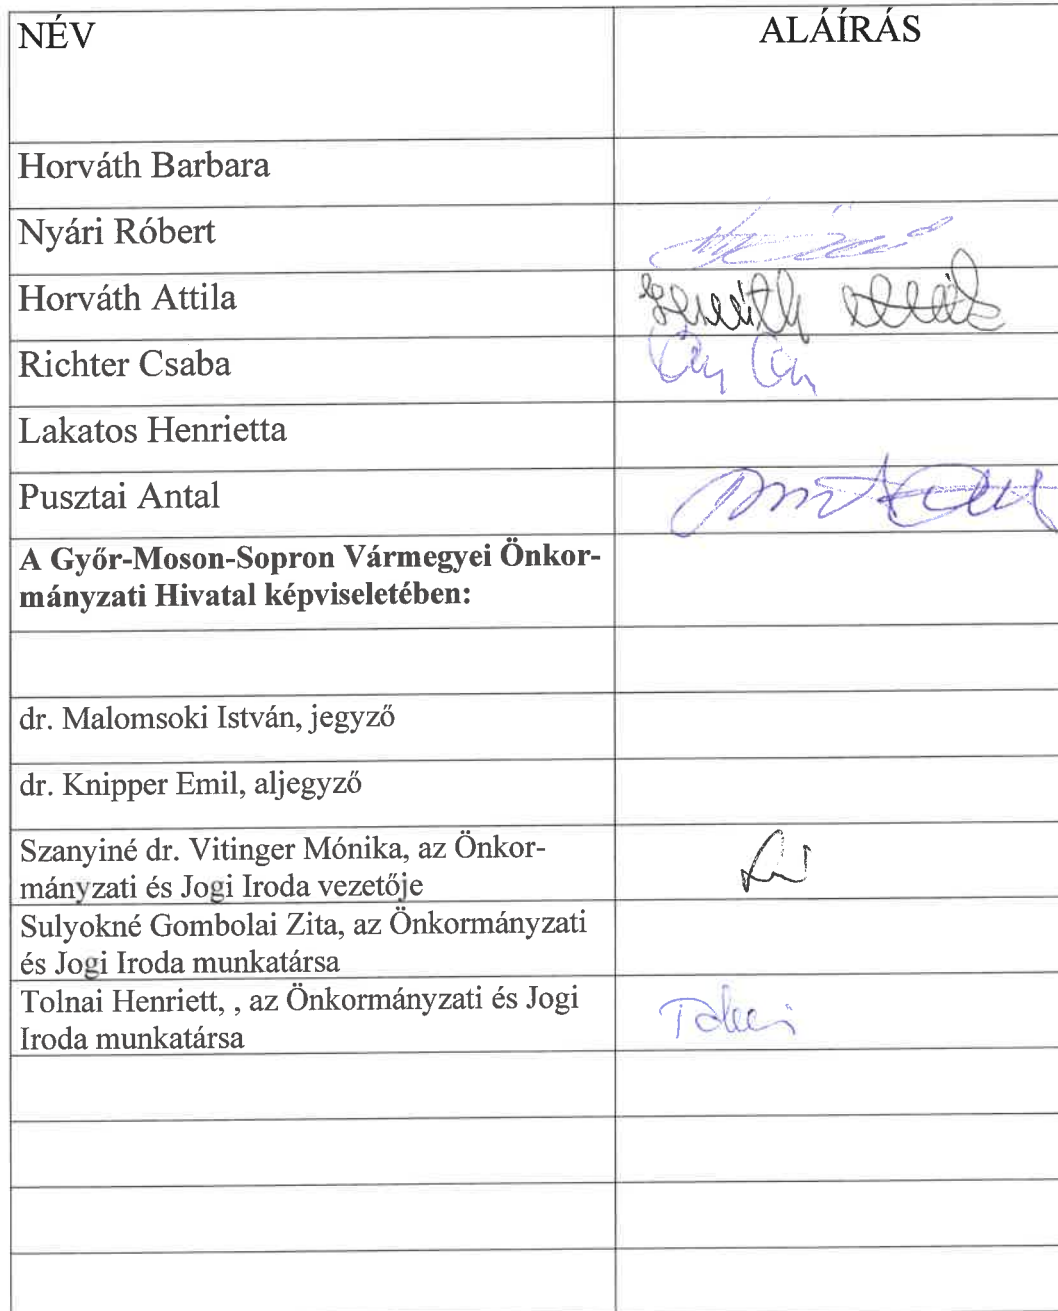 NÉV ALÁÍRÁS
Horváth Barbara
Nyári Róbert
Horváth Attila
Richter Csaba
Lakatos Henrietta
Pusztai Antal
A Győr-Moson-Sopron Vármegyei Önkor-
mányzati Hivatal képviseletében:
dr. Malomsoki István, jegyző
dr. Knipper Emil, aljegyző
Szanyiné dr. Vitinger Mónika, az Önkor-
mányzati és Jogi Iroda vezetője
Sulyokné Gombolai Zita, az Önkormányzati
és Jogi Iroda munkatársa
Tolnai Henriett, , az Önkormányzati és Jogi
Iroda munkatársa